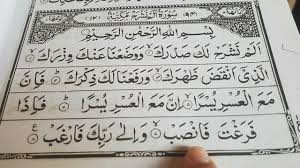 سُورَةُ أَلَمْ نَشْرَحْ مَكِّيَّةٌ
بِسْمِ اللّٰهِ الرَّحْمٰنِ الرَّحِيْمِ
اَلَمْ نَشْرَحْ لَكَ صَدْرَكَ ۙ وَوَضَعْنَا عَنْكَ وِزْرَكَ ۙ
الَّذِيْٓ اَنْقَضَ ظَهْرَكَ ۙ وَرَفَعْنَا لَكَ ذِكْرَكَ ؕ فَاِنَّ
مَعَ الْعُسْرِ يُسْرًا ۙ اِنَّ مَعَ الْعُسْرِ يُسْرًا ؕ فَاِذَا
فَرَغْتَ فَانْصَبْ ۙ وَاِلٰى رَبِّكَ فَارْغَبْ